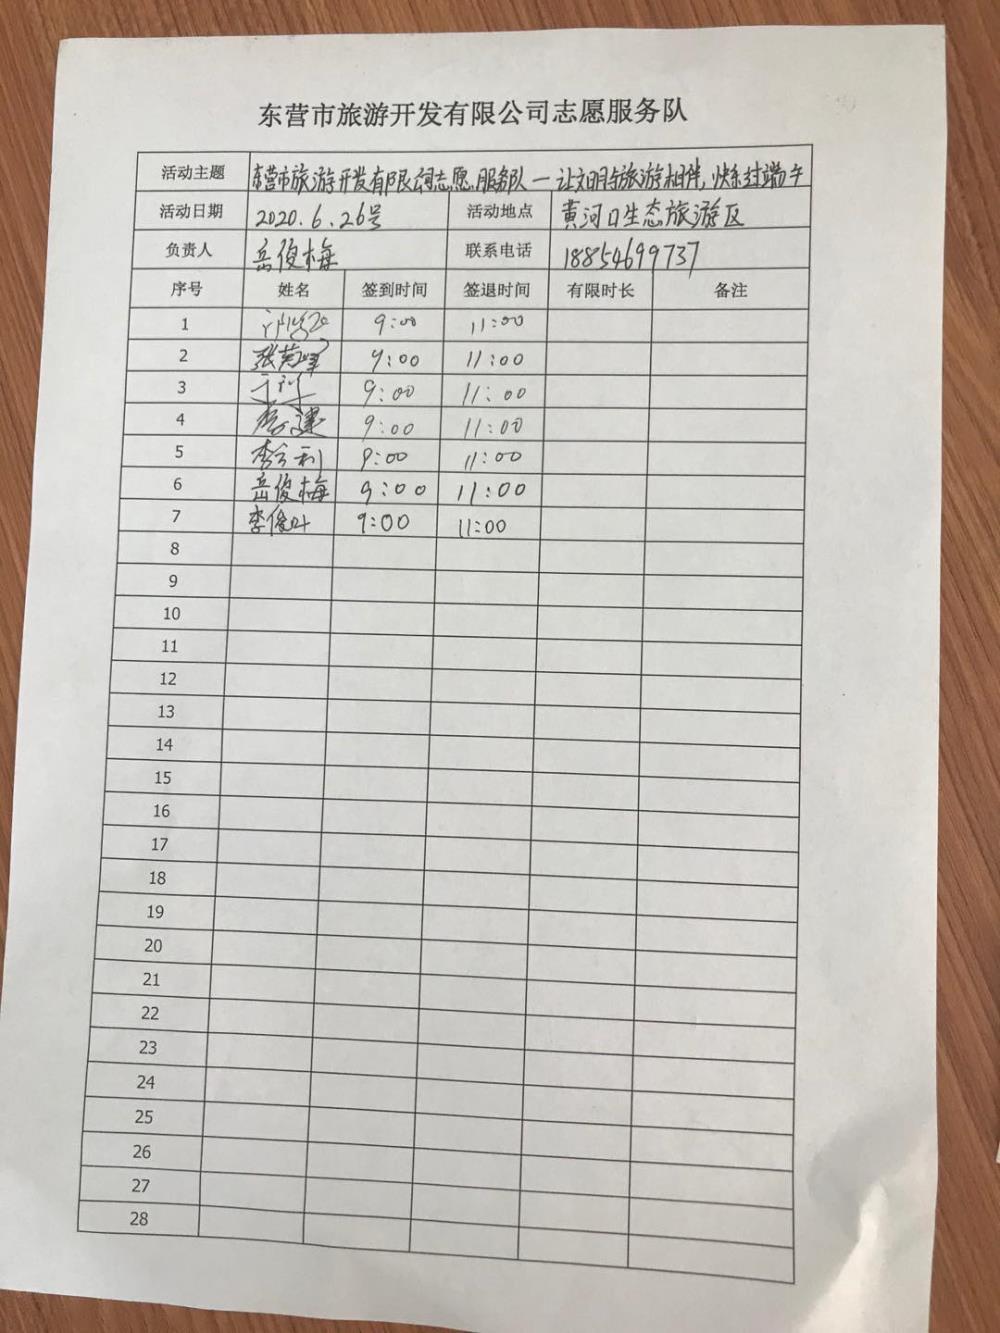 东营市旅游开发有限公司志愿服务队
活动主题 东营市旅游开发有限公司志愿服务队—让文明与旅游相伴,快乐过端午
活动日期 2020.6.26号 活动地点 黄河口生态旅游区
负责人 岳俊梅 联系电话 18854699737
序号 姓名 签到时间 签退时间 有限时长 备注
1 9:00 11:00
2 张英峰 9:00 11:00
3 9:00 11:00
4 李建 9:00 11:00
5 李会利 9:00 11:00
6 岳俊梅 9:00 11:00
7 李俊叶 9:00 11:00
8
9
10
11
12
13
14
15
16
17
18
19
20
21
22
23
24
25
26
27
28